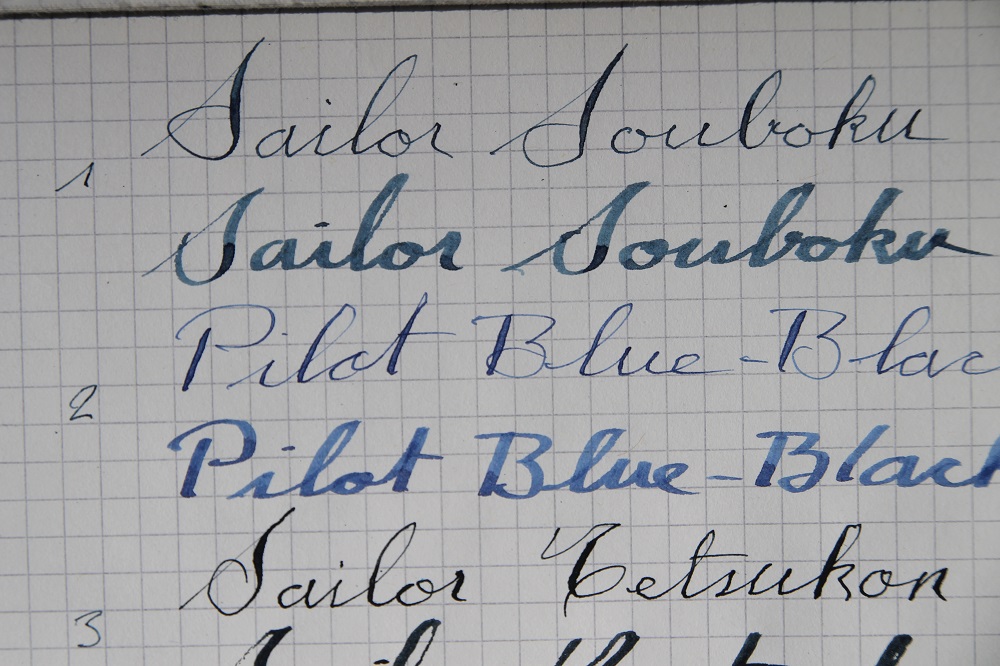 Sailor Souboku
1
Sailor Souboku
Pilot Blue-Blac
2
Pilot Blue-Black
Sailor Tetsukon
3